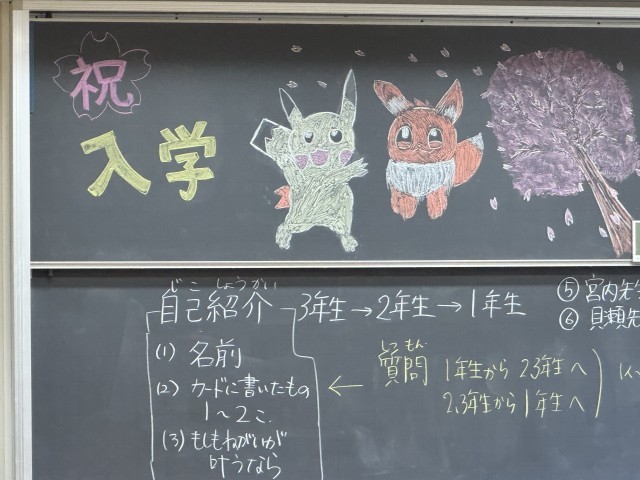 祝
入学
じこ しょうかい
自己紹介 3年生→2年生→1年生
(1) 名前
(2) カードに書いたもの
1〜2こ
(3) もしもねがいが
叶うなら
しつもん
質問 1年生から 2.3年生へ
2.3年生から 1年生へ
⑤ 宮内先
⑥ 貝瀬先